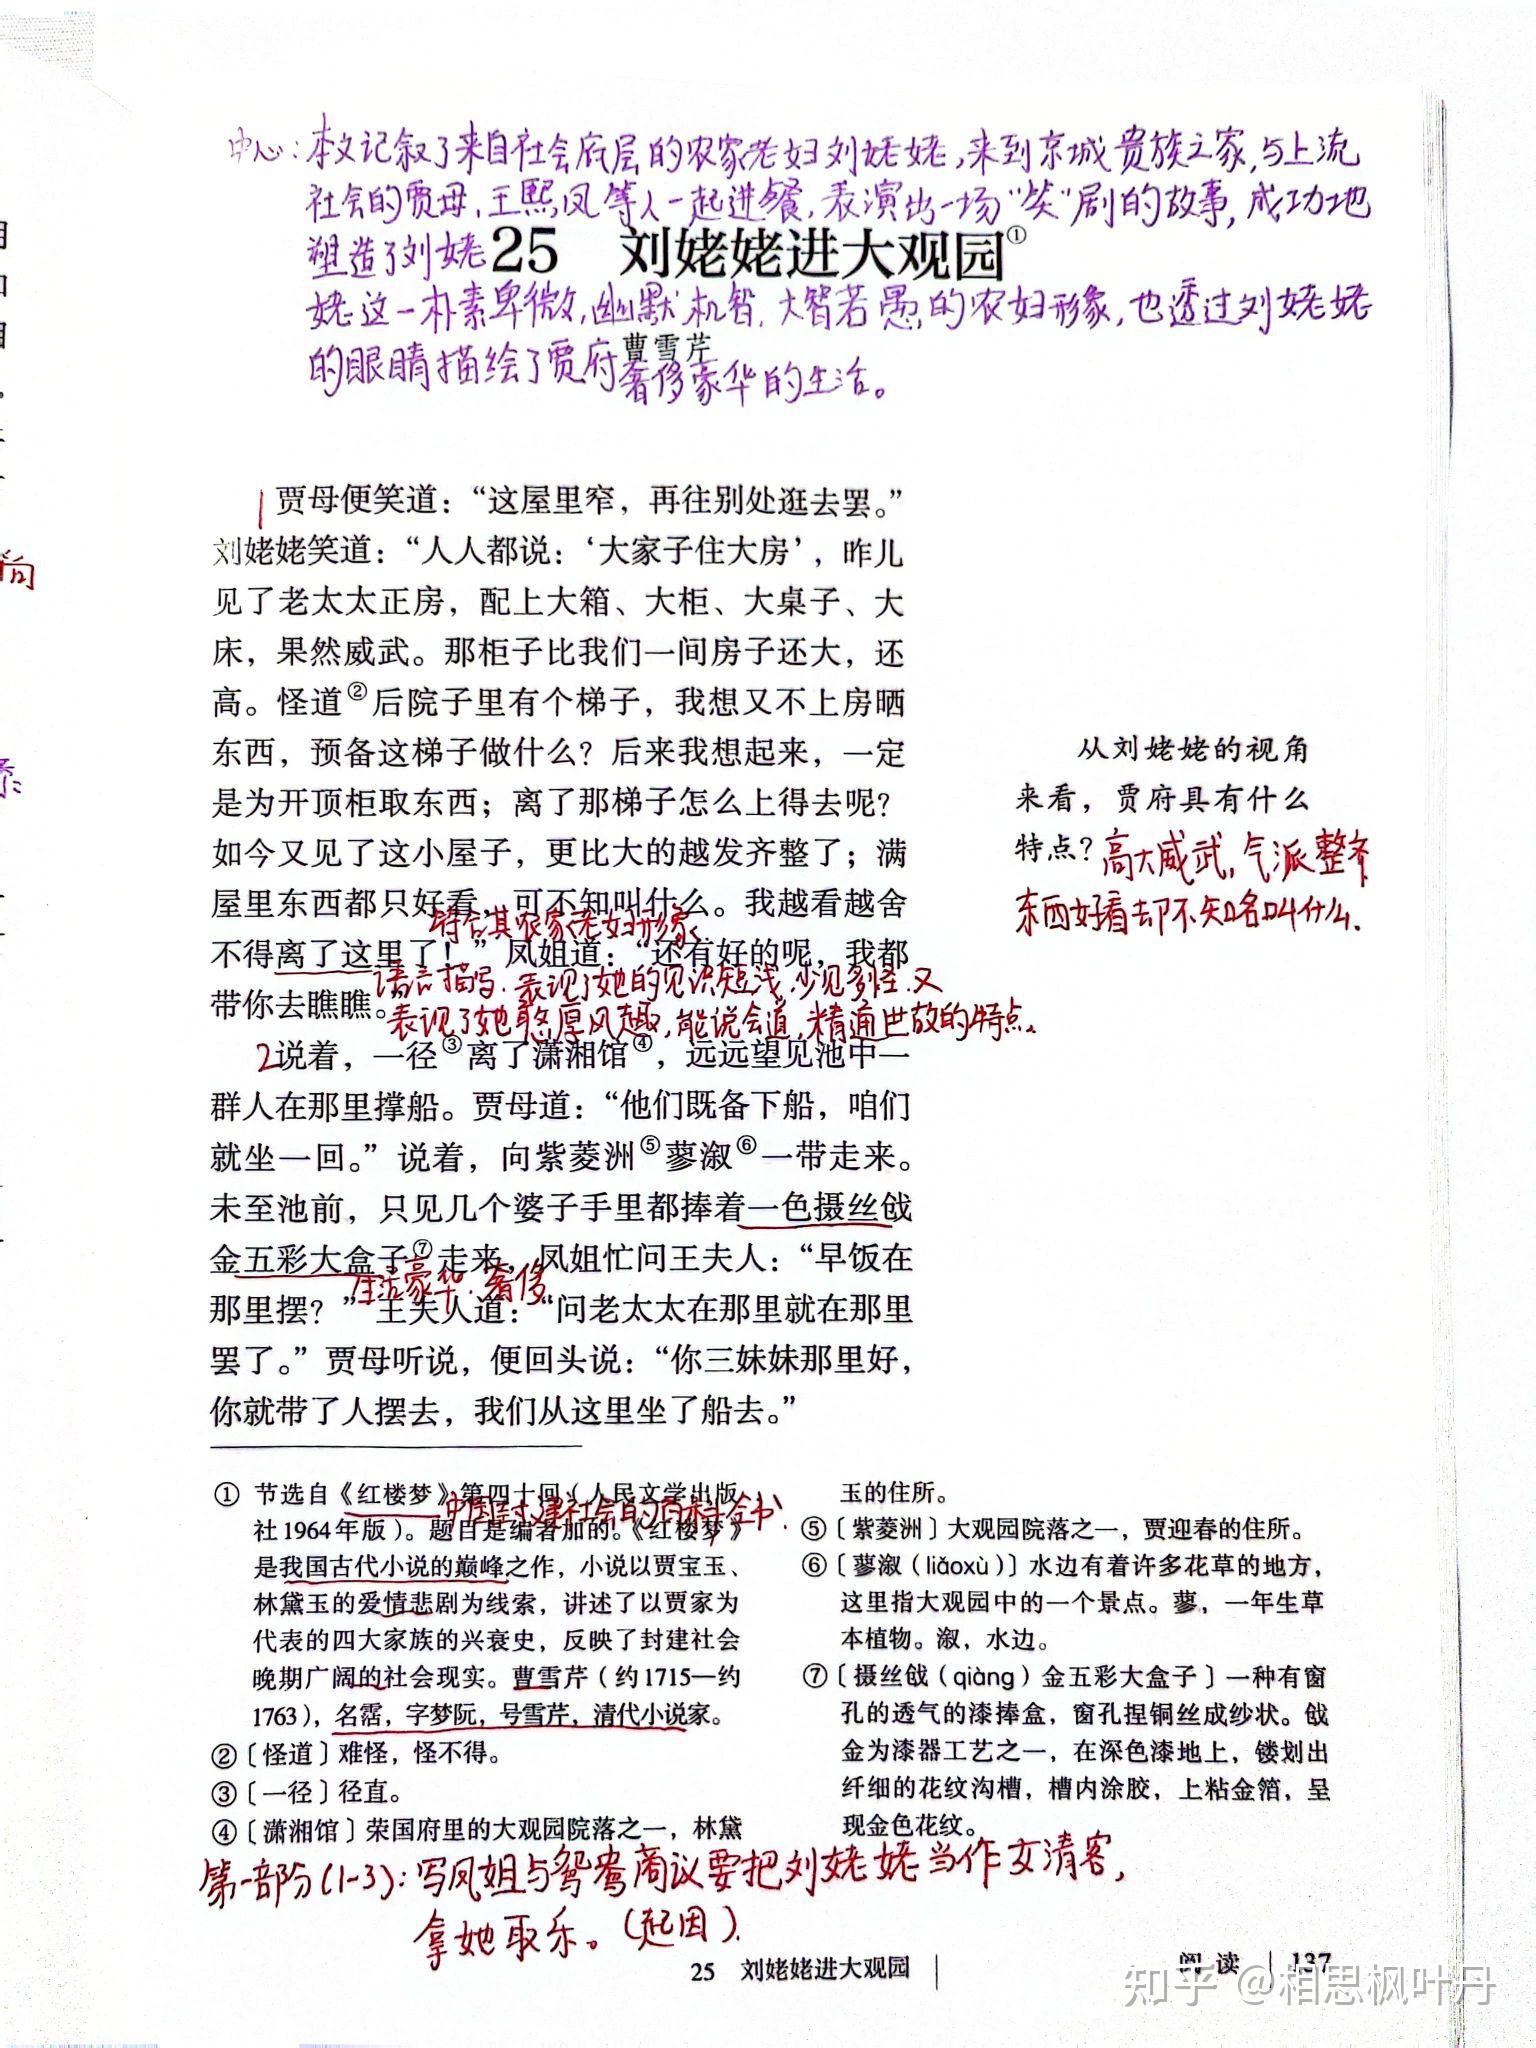 中心：本文记叙了来自社会底层的农家老妇刘姥姥，来到京城贵族之家，与上流
社会的贾母、王熙凤等人一起进餐，表演出一场“笑”剧的故事，成功地
塑造了刘姥
25 刘姥姥进大观园①
姥这一朴素卑微，幽默机智，大智若愚的农妇形象，也透过刘姥姥
曹雪芹
的眼睛描绘了贾府奢侈豪华的生活。
1贾母便笑道：“这屋里窄，再往别处逛去罢。”
刘姥姥笑道：“人人都说：‘大家子住大房’，昨儿
见了老太太正房，配上大箱、大柜、大桌子、大
床，果然威武。那柜子比我们一间房子还大，还
高。怪道②后院子里有个梯子，我想又不上房晒
东西，预备这梯子做什么？后来我想起来，一定
是为开顶柜取东西；离了那梯子怎么上得去呢？
如今又见了这小屋子，更比大的越发齐整了；满
屋里东西都只好看，可不知叫什么。我越看越舍
符合其农家老妇形象
不得离了这里了！”凤姐道：“还有好的呢，我都
语言描写，表现了她的见识短浅，少见多怪，又
带你去瞧瞧。”
表现了她憨厚风趣，能说会道，精通世故的特点。
从刘姥姥的视角
来看，贾府具有什么
特点？高大威武，气派整齐
东西好看却不知名叫什么.
2说着，一径③离了潇湘馆④，远远望见池中一
群人在那里撑船。贾母道：“他们既备下船，咱们
就坐一回。”说着，向紫菱洲⑤蓼溆⑥一带走来。
未至池前，只见几个婆子手里都捧着一色摄丝戗
金五彩大盒子⑦走来，凤姐忙问王夫人：“早饭在
生活豪华、奢侈
那里摆？”王夫人道：“问老太太在那里就在那里
罢了。”贾母听说，便回头说：“你三妹妹那里好，
你就带了人摆去，我们从这里坐了船去。”
① 节选自《红楼梦》第四十回（人民文学出版
中国封建社会的百科全书.
社1964年版）。题目是编者加的。《红楼梦》
是我国古代小说的巅峰之作，小说以贾宝玉、
林黛玉的爱情悲剧为线索，讲述了以贾家为
代表的四大家族的兴衰史，反映了封建社会
晚期广阔的社会现实。曹雪芹（约1715—约
1763），名霑，字梦阮，号雪芹，清代小说家。
②〔怪道〕难怪，怪不得。
③〔一径〕径直。
④〔潇湘馆〕荣国府里的大观园院落之一，林黛
玉的住所。
⑤〔紫菱洲〕大观园院落之一，贾迎春的住所。
⑥〔蓼溆（liǎoxù）〕水边有着许多花草的地方，
这里指大观园中的一个景点。蓼，一年生草
本植物。溆，水边。
⑦〔摄丝戗（qiàng）金五彩大盒子〕一种有窗
孔的透气的漆捧盒，窗孔捏铜丝成纱状。戗
金为漆器工艺之一，在深色漆地上，镂划出
纤细的花纹沟槽，槽内涂胶，上粘金箔，呈
现金色花纹。
第一部分(1-3)：写凤姐与鸳鸯商议要把刘姥姥当作女清客，
拿她取乐。(起因).
25 刘姥姥进大观园
阅读 137
知乎 @相思枫叶丹